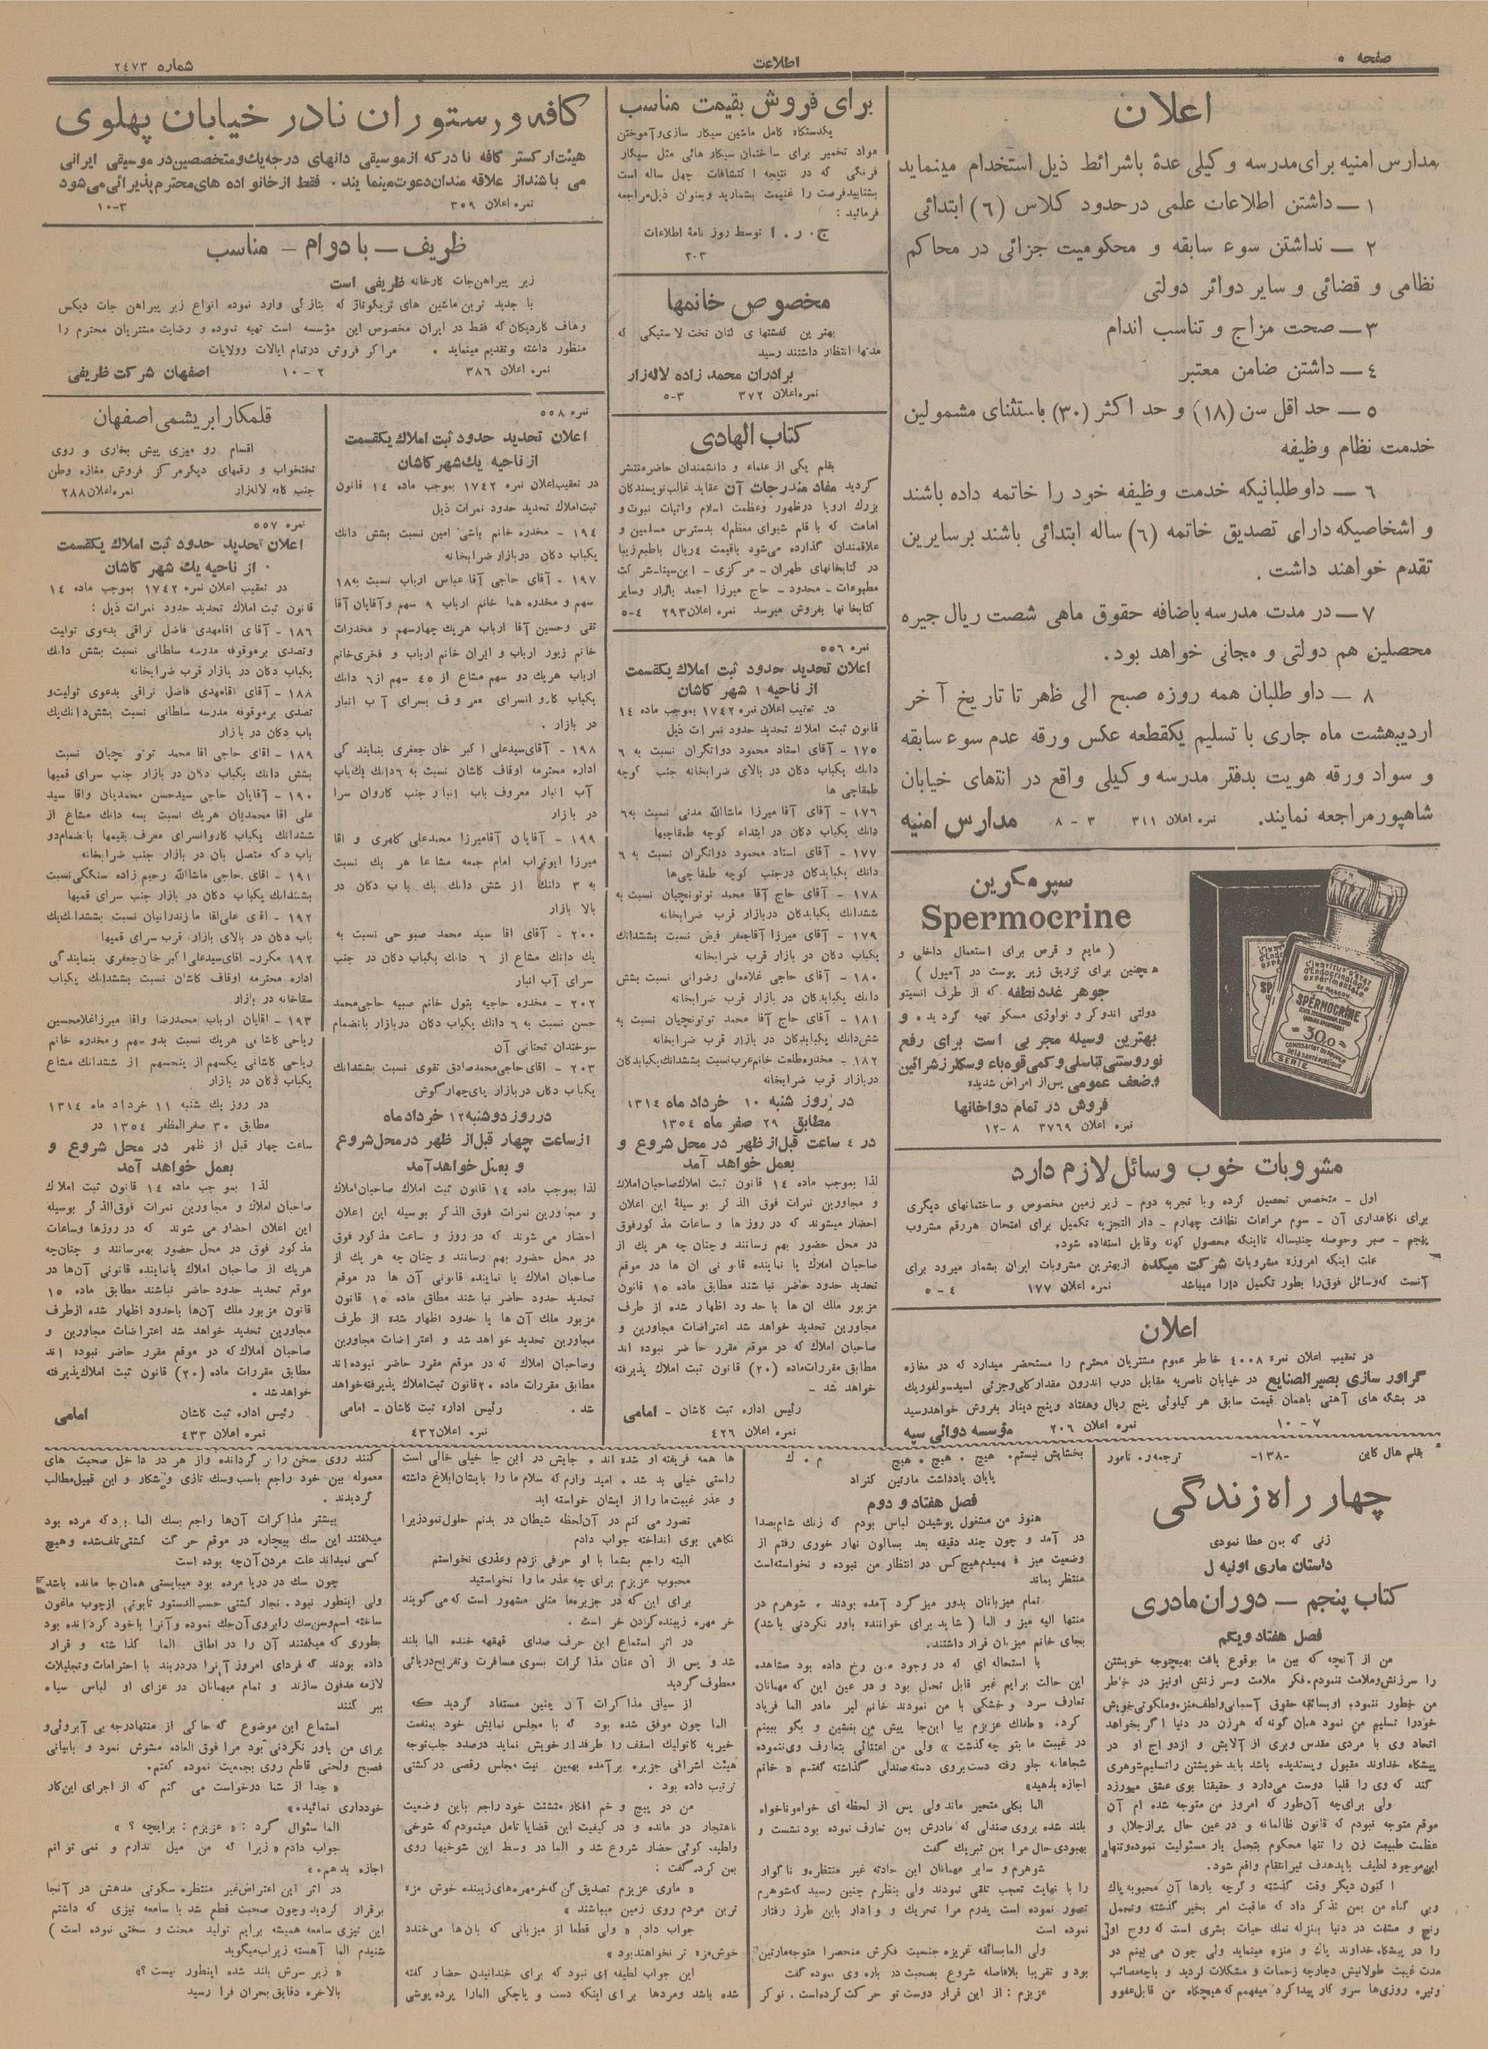 صفحه ۵
اطلاعات
شماره ۲٤۷۳
اعلان
مدارس امنیه برای مدرسه وکیلی عدهٔ باشرائط ذیل استخدام مینماید
۱ — داشتن اطلاعات علمی در حدود کلاس (٦) ابتدائی
۲ — نداشتن سوء سابقه و محکومیت جزائی در محاکم
نظامی و قضائی و سایر دوائر دولتی
۳ — صحت مزاج و تناسب اندام
٤ — داشتن ضامن معتبر
۵ — حد اقل سن (۱۸) و حد اکثر (۳۰) باستثنای مشمولین
خدمت نظام وظیفه
٦ — داوطلبانیکه خدمت وظیفه خود را خاتمه داده باشند
و اشخاصیکه دارای تصدیق خاتمه (٦) ساله ابتدائی باشند برسایرین
تقدم خواهند داشت.
۷ — در مدت مدرسه باضافه حقوق ماهی شصت ریال جیره
محصلین هم دولتی و مجانی خواهد بود.
۸ — داوطلبان همه روزه صبح الی ظهر تا تاریخ آخر
اردیبهشت ماه جاری با تسلیم یکقطعه عکس ورقه عدم سوء سابقه
و سواد ورقه هویت بدفتر مدرسه وکیلی واقع در انتهای خیابان
شاهپور مراجعه نمایند.
نمره اعلان ۳۱۱ ۳ - ۸ مدارس امنیه
سپرمکرین
Spermocrine
( مایع و قرص برای استعمال داخلی و
همچنین برای تزریق زیر پوست در آمپول )
جوهر غدد نطفه که از طرف انستیتو
دولتی اندوکرنولوژی مسکو تهیه گردیده و
بهترین وسیله مجربی است برای رفع
نوروستنی تناسلی و کمی قوه باء و سکلرز شرائین
و ضعف عمومی پس از امراض شدیده
فروش در تمام دواخانها
نمره اعلان ۳۷٦۹ ۸-۱۲
L'INSTITUT D'ÉTAT
d'Endocrinologie
expérimentale
de Moscou
SPERMOCRINE
30,0
SERIE
مشروبات خوب وسائل لازم دارد
اول - متخصص تحصیل کرده وبا تجربه دوم - زیر زمین مخصوص و ساختمانهای دیگری
برای نگاهداری آن - سوم مراعات نظافت چهارم - دارالتجزیه تکمیل برای امتحان هر رقم مشروب
پنجم - صبر وحوصله چندساله تا اینکه محصول کهنه وقابل استفاده شود.
علت اینکه امروزه مشروبات شرکت میکده از بهترین مشروبات ایران بشمار میرود برای
آنست که وسائل فوق را بطور تکمیل دارا میباشد نمره اعلان ۱۷۷ ٤-۵
اعلان
در تعقیب اعلان نمره ٤۰۰۸ خاطر عموم مشتریان محترم را مستحضر میدارد که در مغازه
گراور سازی بصیرالصنایع در خیابان ناصریه مقابل درب اندرون مقدار کلی وجزئی اسیدسولفوریک
در بشکه های آهنی باهمان قیمت سابق هر کیلوئی پنج ریال وهفتاد وپنج دینار بفروش خواهد رسید
۷ - ۱۰ نمره اعلان ۲۰٦ مؤسسه دوائی سپه
برای فروش بقیمت مناسب
یکدستگاه کامل ماشین سیگار سازی وآموختن
مواد تخمیر برای ساختمان سیگار هائی مثل سیگار
فرنگی که در نتیجه اکتشافات چهل ساله است
بشتابید فرصت را غنیمت بشمارید وبعنوان ذیل مراجعه
فرمائید :
ج. ر. ا توسط روزنامهٔ اطلاعات
۲-۳
مخصوص خانمها
بهترین کفشهای کتان تخت لاستیکی که
مدتها انتظار داشتند رسید
برادران محمد زاده لاله زار
نمره اعلان ۳۷۲ ۳-۵
کتاب الهادی
بقلم یکی از علماء و دانشمندان حاضر منتشر
گردید مفاد مندرجات آن عقاید غالب نویسندگان
بزرک اروپا درظهور وعظمت اسلام واثبات نبوت و
امامت که با قلم شیوای معظم له بدسترس مسلمین و
علاقمندان گذارده می شود باقیمت ٤ ریال باطبع زیبا
در کتابخانهای طهران - مرکزی - ابن سینا - شرکت
مطبوعات - محدود - حاج میرزا احمد بازار وسایر
کتابخانها بفروش میرسد نمره اعلان ۲۹۳ ٤-۵
نمره ۵۵٦
اعلان تحدید حدود ثبت املاک یکقسمت
از ناحیه ۱ شهر کاشان
در تعقیب اعلان نمره ۱۷٤۲ بموجب ماده ۱٤
قانون ثبت املاک تحدید حدود نمرات ذیل
۱۷۵ - آقای استاد محمود دواتگران نسبت به ٦
دانک یکباب دکان در بالای ضرابخانه جنب کوچه
طبقاچی ها
۱۷٦ - آقای آقا میرزا ماشاالله مدنی نسبت به ٦
دانک یکباب دکان در ابتداء کوچه طبقاچیها
۱۷۷ - آقای استاد محمود دواتگران نسبت به ٦
دانک یکبابدکان درجنب کوچه طبقاچی ها
۱۷۸ - آقای حاج آقا محمد توتونچیان نسبت به
ششدانک یکبابدکان دربازار قرب ضرابخانه
۱۷۹ - آقای میرزا آقاجعفر فیض نسبت بششدانک
یکبابدکان در بازار قرب ضرابخانه
۱۸۰ - آقای حاجی غلامعلی رضوانی نسبت بشش
دانک یکبابدکان در بازار قرب ضرابخانه
۱۸۱ - آقای حاج آقا محمد توتونچیان نسبت به
شش دانک یکبابدکان در بازار قرب ضرابخانه
۱۸۲ - مخدره طلعت خانم عرب نسبت بششدانک یکبابدکان
دربازار قرب ضرابخانه
در روز شنبه ۱۰ خرداد ماه ۱۳۱٤
مطابق ۲۹ صفر ماه ۱۳۵٤
در ٤ ساعت قبل از ظهر در محل شروع و
بعمل خواهد آمد
لذا بموجب ماده ۱٤ قانون ثبت املاک صاحبان املاک
و مجاورین نمرات فوق الذکر بوسیلهٔ این اعلان
احضار میشوند که در روز ها و ساعات مذکور فوق
در محل حضور بهم رسانند و چنان چه هر یک از
صاحبان املاک یا نماینده قانونی آن ها در موقع
تحدید حدود حاضر نباشند مطابق ماده ۱۵ قانون
مزبور ملک آن ها با حدود اظهار شده از طرف
مجاورین تحدید خواهد شد اعتراضات مجاورین و
صاحبان املاک که در موقع مقرر حاضر نبوده اند
مطابق مقررات ماده (۲۰) قانون ثبت املاک پذیرفته
خواهد شد -
رئیس اداره ثبت کاشان - امامی
نمره اعلان ٤۲٦
کافه و رستوران نادر خیابان پهلوی
هیئت ارکستر کافه نادر که از موسیقی دانهای درجه یک و متخصصین در موسیقی ایرانی
می باشند از علاقه مندان دعوت مینماید. فقط از خانواده های محترم پذیرائی می شود
نمره اعلان ۳۵۹ ۳-۱۰
ظریف — با دوام — مناسب
زیر پیراهن جات کارخانه ظریفی است
با جدید ترین ماشین های تریکوتاژ که بتازگی وارد نموده انواع زیر پیراهن جات دیکس
وهاف کاردیکان که فقط در ایران مخصوص این مؤسسه است تهیه نموده و رضایت مشتریان محترم را
منظور داشته وتقدیم مینماید. مراکز فروش درتمام ایالات وولایات
نمره اعلان ۳۸٦ ۲ - ۱۰ اصفهان شرکت ظریفی
نمره ۵۵۸
اعلان تحدید حدود ثبت املاک یکقسمت
از ناحیه یک شهر کاشان
در تعقیب اعلان نمره ۱۷٤۲ بموجب ماده ۱٤ قانون
ثبت املاک تحدید حدود نمرات ذیل
۱۹٤ - مخدره خانم باشی امین نسبت بشش دانک
یکباب دکان دربازار ضرابخانه
۱۹۷ - آقای حاجی آقا عباس ارباب نسبت به ۱۸
سهم و مخدره هما خانم ارباب ۹ سهم و آقایان آقا
تقی وحسین آقا ارباب هریک چهارسهم و مخدرات
خانم زیور ارباب و ایران خانم ارباب و فخری خانم
ارباب هریک دو سهم مشاع از ٤۵ سهم از ٦ دانک
یکباب کاروانسرای معروف بسرای آب انبار
در بازار .
۱۹۸ - آقای سیدعلی اکبر خان جعفری بنمایندگی
اداره محترمه اوقاف کاشان نسبت به ٦ دانک یکباب
آب انبار معروف باب انبار جنب کاروان سرا
در بازار
۱۹۹ - آقایان آقامیرزا محمدعلی کلهری و اقا
میرزا ابوتراب امام جمعه مشاعا هر یک نسبت
به ۳ دانک از شش دانک یک باب دکان در
بالا بازار
۲۰۰ - آقای اقا سید محمد صبوحی نسبت به
یک دانک مشاع از ٦ دانک یکباب دکان در جنب
سرای آب انبار
۲۰۲ - مخدره حاجیه بتول خانم صبیه حاجی محمد
حسن نسبت به ٦ دانک یکباب دکان دربازار بانضمام
سوختدان تحتانی آن
۲۰۳ - اقای حاجی محمدصادق تقوی نسبت بششدانک
یکباب دکان دربازار پای چهارگوش
درروز دوشنبه ۱۲ خرداد ماه
از ساعت چهار قبل از ظهر درمحل شروع
و بعمل خواهد آمد
لذا بموجب ماده ۱٤ قانون ثبت املاک صاحبان املاک
و مجاورین نمرات فوق الذکر بوسیله این اعلان
احضار می شوند که در روز و ساعت مذکور فوق
در محل حضور بهم رسانند و چنان چه هر یک از
صاحبان املاک یا نماینده قانونی آن ها در موقع
تحدید حدود حاضر نباشند مطابق ماده ۱۵ قانون
مزبور ملک آن ها با حدود اظهار شده از طرف
مجاورین تحدید خواهد شد و اعتراضات مجاورین
وصاحبان املاک که در موقع مقرر حاضر نبوده اند
مطابق مقررات ماده ۲۰ قانون ثبت املاک پذیرفته خواهد
شد . رئیس اداره ثبت کاشان - امامی
نمره اعلان ٤۳۲
قلمکار ابریشمی اصفهان
اقسام رو میزی پیش بخاری و روی
تختخواب و رقمهای دیگر مرکز فروش مغازه وطن
جنب کافه لاله زار نمره اعلان ۲۸۸
نمره ۵۵۷
اعلان تحدید حدود ثبت املاک یکقسمت
از ناحیه یک شهر کاشان
در تعقیب اعلان نمره ۱۷٤۲ بموجب ماده ۱٤
قانون ثبت املاک تحدید حدود نمرات ذیل :
۱۸٦ - آقای اقامهدی فاضل نراقی بدعوی تولیت
وتصدی برموقوفه مدرسه سلطانی نسبت بشش دانک
یکباب دکان در بازار قرب ضرابخانه
۱۸۸ - آقای اقامهدی فاضل نراقی بدعوی تولیت و
تصدی برموقوفه مدرسه سلطانی نسبت بشش دانک یک
باب دکان در بازار
۱۸۹ - اقای حاجی اقا محمد توتونچیان نسبت
بشش دانک یکباب دکان در بازار جنب سرای قمیها
۱۹۰ - آقایان حاجی سیدحسن محمدیان واقا سید
علی اقا محمدیان هریک نسبت بسه دانک مشاع از
ششدانک یکباب کاروانسرای معرف بقیمها بانضمام دو
باب دکه متصل بان در بازار جنب ضرابخانه
۱۹۱ - اقای حاجی ماشاالله رحیم زاده سنگکی نسبت
بششدانک یکباب دکان در بازار جنب سرای قمیها
۱۹۲ - اقای علی اقا مازندرانیان نسبت بششدانک یک
باب دکان در بالای بازار قرب سرای قمیها
۱۹۲ مکرر- اقای سیدعلی اکبر خان جعفری بنمایندگی
اداره محترمه اوقاف کاشان نسبت بششدانک یکباب
سقاخانه در بازار
۱۹۳ - اقایان ارباب محمدرضا واقا میرزا غلامحسین
ریاحی کاشانی هریک نسبت بدو سهم و مخدره خانم
ریاحی کاشانی یکسهم از پنجسهم از ششدانک مشاع
یکباب دکان در بازار
در روز یک شنبه ۱۱ خرداد ماه ۱۳۱٤
مطابق ۳۰ صفرالمظفر ۱۳۵٤ در
ساعت چهار قبل از ظهر در محل شروع و
بعمل خواهد آمد
لذا بموجب ماده ۱٤ قانون ثبت املاک
صاحبان املاک و مجاورین نمرات فوق الذکر بوسیله
این اعلان احضار می شوند که در روزها وساعات
مذکور فوق در محل حضور بهمرسانند و چنان چه
هریک از صاحبان املاک یا نماینده قانونی آن ها در
موقع تحدید حدود حاضر نباشند مطابق ماده ۱۵
قانون مزبور ملک آن ها باحدود اظهار شده از طرف
مجاورین تحدید خواهد شد اعتراضات مجاورین و
صاحبان املاک که در موقع مقرر حاضر نبوده اند
مطابق مقررات ماده (۲۰) قانون ثبت املاک پذیرفته
خواهد شد .
رئیس اداره ثبت کاشان امامی
نمره اعلان ٤۳۳
بقلم هال کاین -۱۳۸- ترجمه ر. نامور
چهار راه زندگی
زنی که بمن عطا نمودی
داستان ماری اونیه ل
کتاب پنجم — دوران مادری
فصل هفتاد ویکم
من از آنچه که بین ما بوقوع یافت بهیچوجه خویشتن
را سرزنش وملامت ننمودم. فکر ملامت وسرزنش اونیز در خاطر
من خطور ننموده اوبسائقه حقوق آسمانی ولطف منزه وملکوتی خویش
خودرا تسلیم من نمود همان گونه که هرزن در دنیا اگر بخواهد
اتحاد وی با مردی مقدس وبری از آلایش و ازدواج او در
پیشگاه خداوند مقبول وپسندیده باشد باید خویشتن را تسلیم شوهری
کند که وی را قلبا دوست می دارد و حقیقتا بوی عشق میورزد
ولی برای چه آن طور که امروز من متوجه شده ام آن
موقع متوجه نبودم که قانون ظالمانه و در عین حال پرازجلال و
عظمت طبیعت زن را تنها محکوم بتحمل بار مسئولیت نموده وتنها
این موجود لطیف باید هدف تیرانتقام واقع شود.
اکنون دیگر وقت گذشته و گرچه بارها آن محبوبه پاک
وبی گناه من بمن تذکر داد که عاقبت امر بخیر گذشته وتحمل
رنج و مشقت در دنیا بمنزله نمک حیات بشری است که روح او
را در پیشگاه خداوند پاک و منزه مینماید ولی چون می بینم در
مدت غیبت طولانیش دچار چه زحمات و مشکلات گردید و باچه مصائب
وتیره روزی ها سرو کار پیدا کرد میفهمم که هیچگاه من قابل عفوو
بخشایش نیستم. هیچ . هیچ . هیچ م . ک
پایان یادداشت مارتین کنراد
فصل هفتاد و دوم
هنوز من مشغول پوشیدن لباس بودم که زنک شام بصدا
در آمد و چون چند دقیقه بعد بسالون نهار خوری رفتم از
وضعیت میز فهمیدم هیچ کس در انتظار من نبوده و نخواسته است
منتظر بماند
تمام میزبانان بدور میز گرد آمده بودند . شوهرم در
منتها الیه میز و الما ( شاید برای خواننده باور نکردنی باشد )
بجای خانم میزبان قرار داشتند.
با استحاله ای که در وجود من رخ داده بود مشاهده
این حالت برایم غیر قابل تحمل بود و در عین این که مهمانان
تعارف سرد و خشکی با من نمودند خانم لیر مادر الما فریاد
کرد. « طفلک عزیزم بیا این جا پیش من بنشین و بگو ببینم
در غیبت ما بتو چه گذشت » ولی من اعتنائی بتعارف وی ننموده
شجاعانه جلو رفته دست بروی دسته صندلی گذاشته گفتم « خانم
اجازه بدهید»
الما بکلی متحیر ماند ولی پس از لحظه ای خواه و ناخواه
بلند شده بروی صندلی که مادرش بمن تعارف نموده بود نشست و
بهبودی حال مرا بمن تبریک گفت
شوهرم و سایر مهمانان این حادثه غیر منتظره و ناگوار
را با نهایت تعجب تلقی نمودند ولی بنظرم چنین رسید که شوهرم
تصور نموده است پدرم مرا تحریک و وادار باین طرز رفتار
نموده است
ولی الما بسائقه غریزه جنسیت فکرش منحصرا متوجه مارتین
بود و تقریبا بلافاصله شروع بصحبت در باره وی نموده گفت
عزیزم : از این قرار دوست تو حرکت کرده است . نوکر
ها همه فریفته او شده اند . جایش در این جا خیلی خالی است
راستی خیلی بد شد . امید وارم که سلام ما را بایشان ابلاغ داشته
و عذر غیبت ما را از ایشان خواسته اید
تصور می کنم در آن لحظه شیطان در بدنم حلول نمود زیرا
نگاهی بوی انداخته جواب دادم
البته راجع بشما با او حرفی نزدم وعذری نخواستم
محبوب عزیزم برای چه عذر ما را نخواستید
برای این که در جزیره ما مثلی مشهور است که می گویند
خر مهره زیبنده گردن خر است .
در اثر استماع این حرف صدای قهقهه خنده الما بلند
شد و پس از آن عنان مذاکرات بسوی مسافرت وتفریح دریائی
معطوف گردید
از سیاق مذاکرات آن چنین مستفاد گردید که
الما چون موفق شده بود که با مجلس نمایش خود بمنفعت
خیریه کاتولیک اسقف را طرفدار خویش نماید درصدد جلب توجه
هیئت اشرافی جزیره برآمده بهمین نیت مجلس رقصی در کشتی
ترتیب داده بود .
من در پیچ و خم افکار متشتت خود راجع باین وضعیت
ناهنجار در مانده و در کیفیت این قضایا تامل مینمودم که شوخی
ولطیفه گوئی حضار شروع شد و الما در وسط این شوخیها روی
بمن کرده گفت :
« ماری عزیزم تصدیق کن که خر مهره های زیبنده خوش مزه
ترین مردم روی زمین میباشند »
جواب داد. « ولی قطعا از میزبانی که بان ها می خندد
خوش مزه تر نخواهند بود »
این جواب لطیفه ای نبود که برای خندانیدن حضار گفته
شده باشد ومردها برای اینکه دست و پاچگی الما را پرده پوشی
کنند روی سخن را برگردانده و از هر در داخل صحبت های
معموله بین خود راجع باسب وسک تازی و شکار و این قبیل مطالب
گردیدند .
بیشتر مذاکرات آن ها راجع بسک الما بود که مرده بود
میگفتند این سک بیچاره در موقع حرکت کشتی تلف شده و هیچ
کسی نمیداند علت مردن آن چه بوده است
چون سک در دریا مرده بود میبایستی همان جا مانده باشد
ولی اینطور نبود . نجار کشتی حسب الدستور تابوتی از چوب ماغون
ساخته اسم وسن سک را بروی آن حک نموده و آنرا با خود گردانده بود
بطوری که میگفتند آن را در اطاق الما گذاشته و قرار
داده بودند که فردای امروز آنرا دردربند با احترامات وتجلیلات
لازمه مدفون سازند و تمام میهمانان در عزای او لباس سیاه
ببر کنند
استماع این موضوع که حاکی از منتهادرجه بی آبروئی و
برای من باور نکردنی بود مرا فوق العاده مشوش نمود و بابیانی
فصیح ولحنی قاطع روی بجمعیت نموده گفتم.
« جدا از شما درخواست می کنم که از اجرای این کار
خودداری نمائید.»
الما سئوال کرد : « عزیزم : برای چه ؟ »
جواب دادم « زیرا که من میل ندارم و نمی توانم
اجازه بدهم. »
در اثر این اعتراض غیر منتظره سکوتی مدهش در آنجا
برقرار گردید وچون صحبت قطع شد با سامعه تیزی که داشتم
( این تیزی سامعه همیشه برایم تولید محنت و سختی نموده است )
شنیدم الما آهسته زیر لب میگوید
« زیر سرش بلند شده اینطور نیست ؟»
بالاخره دقایق بحران فرا رسید